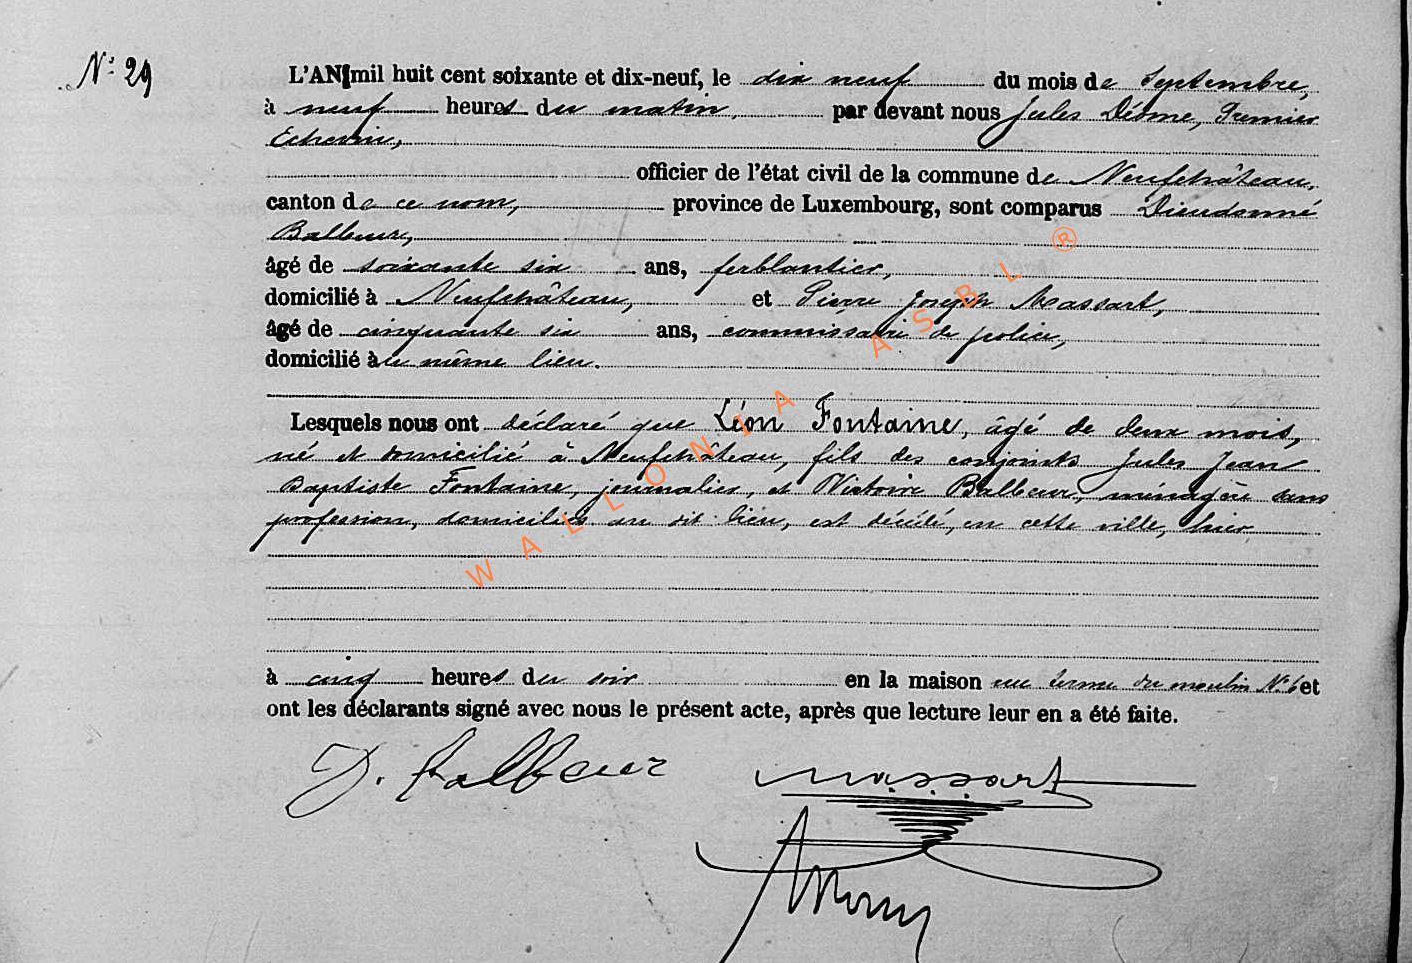 N° 29
L'AN mil huit cent soixante et dix-neuf, le dix neuf du mois de Septembre,
à neuf heures du matin, par devant nous Jules Désme, Premier
Echevin,
officier de l'état civil de la commune de Neufchâteau,
canton de ce nom, province de Luxembourg, sont comparus Dieudonné
Balbeur,
âgé de soixante six ans, ferblantier,
domicilié à Neufchâteau, et Pierre Joseph Massart,
âgé de cinquante six ans, commissaire de police,
domicilié à le même lieu.
Lesquels nous ont déclaré que Léon Fontaine, âgé de deux mois,
né et domicilié à Neufchâteau, fils des conjoints Jules Jean
Baptiste Fontaine, journalier, et Victoire Balbeur, ménagère sans
profession, domiciliés au dit lieu, est décédé, en cette ville, hier
à cinq heures du soir en la maison rue du moulin N° 6 et
ont les déclarants signé avec nous le présent acte, après que lecture leur en a été faite.
D. Balbeur Massart
WALLONIA ASBL ®